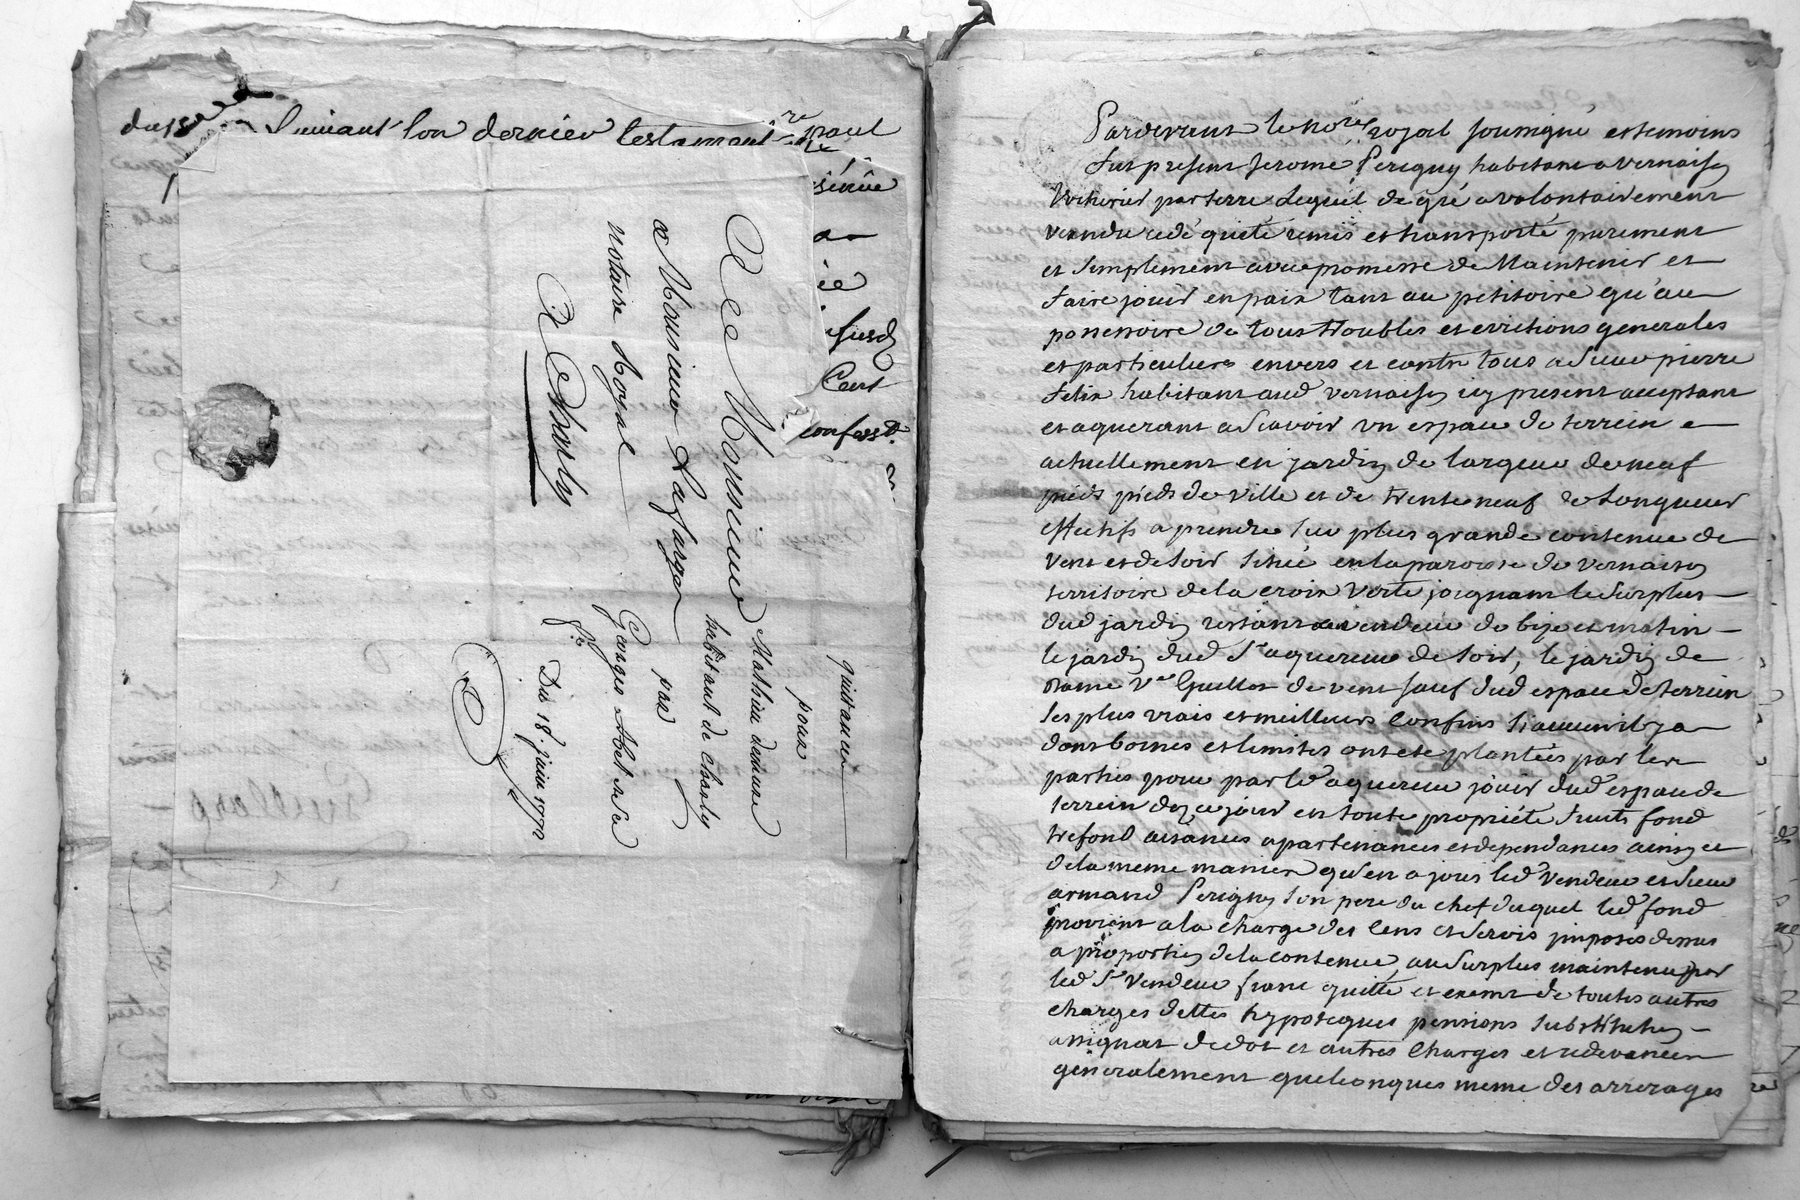 suivant son dernier testament
paul
Cent
confesse
A Monsieur
a Monsieur Lafarge
notaire Royal
A Charly
quittance
pour
Mathieu
habitant de Charly
par
Georges Abel
Du 18. juin 1772
Pardevant le no.re royal soussigné et temoins
fut present Jerome Perigny habitant a vernaison
voiturier par terre lequel de gré a volontairement
vendu cedé quité remis et transporté purement
et simplement avec promesse de Maintenir et
faire jouir en paix tant au petitoire qu'au
possessoire de tous troubles et evictions generales
et particulieres envers et contre tous a Sieur pierre
felix habitant aud vernaison icy present acceptant
et aquerant a Scavoir un espace de terrein
actuellement en jardin de largeur de neuf
pieds pieds de ville et de trente neuf de Longueur
effectifs a prendre sur plus grande contenue de
vent et de soir situé en la paroisse de vernaison
territoire de la croix verte joignant le Surplus
dud jardin restant au vendeur de bize et matin
le jardin dud Sr aquereur de Soir, le jardin de
dame Ve Guillot de vent sauf dud espace de terrein
ses plus vrais et meilleurs Confins si aucuns il y a
dont bornes et limites ont eté plantées par les
parties pour par led aquereur jouir dud espace de
terrein dez ce jour en toute propriété fruits fond
trefond aisances apartenances et dependances ainsy et
de la meme maniere qu'en a joui led vendeur et Sieur
armand Perigny son pere du chef duquel led fond
provient a la charge des Cens et Servis imposés dessus
a proportion de la contenue, au Surplus maintenu par
led Sr Vendeur franc quitte et exemt de toutes autres
charges dettes hypoteques pensions Substitution
assignat de dot et autres Charges et redevances
generalement quelconques meme des arrerages